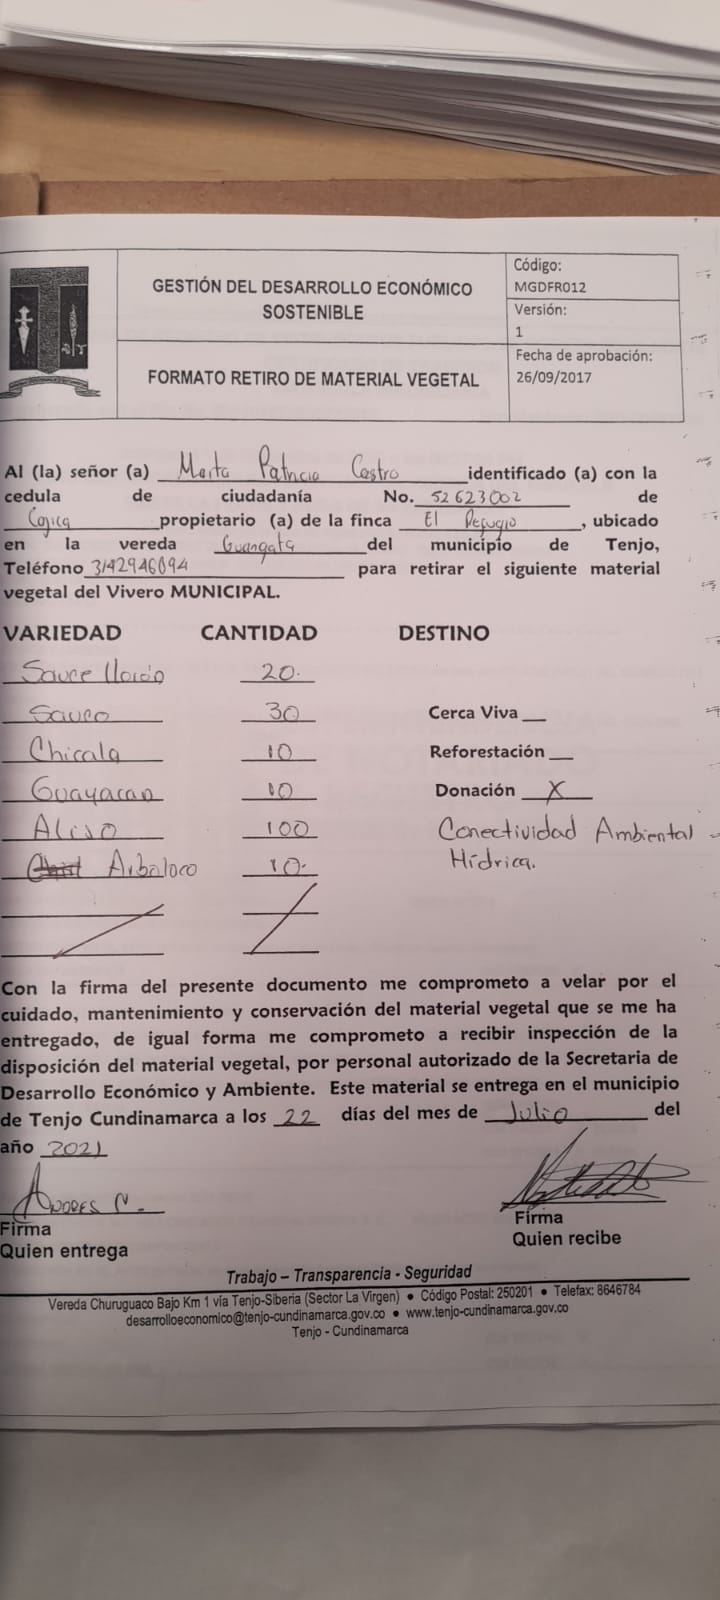 GESTIÓN DEL DESARROLLO ECONÓMICO
SOSTENIBLE
FORMATO RETIRO DE MATERIAL VEGETAL
Código:
MGDFR012
Versión:
1
Fecha de aprobación:
26/09/2017
Al (la) señor (a) Marta Patricia Castro identificado (a) con la
cedula de ciudadanía No. 52 623 002 de
Cajica propietario (a) de la finca El Refugio, ubicado
en la vereda Guangata del municipio de Tenjo,
Teléfono 3142946094 para retirar el siguiente material
vegetal del Vivero MUNICIPAL.
VARIEDAD CANTIDAD DESTINO
Sauce llorón 20.
Sauco 30 Cerca Viva __
Chicala 10 Reforestación __
Guayacan 10 Donación X
Aliso 100 Conectividad Ambiental
Arboloco 10. Hídrica.
Con la firma del presente documento me comprometo a velar por el
cuidado, mantenimiento y conservación del material vegetal que se me ha
entregado, de igual forma me comprometo a recibir inspección de la
disposición del material vegetal, por personal autorizado de la Secretaria de
Desarrollo Económico y Ambiente. Este material se entrega en el municipio
de Tenjo Cundinamarca a los 22 días del mes de Julio del
año 2021
Andres N.
Firma Firma
Quien entrega Quien recibe
Trabajo – Transparencia - Seguridad
Vereda Churuguaco Bajo Km 1 vía Tenjo-Siberia (Sector La Virgen) • Código Postal: 250201 • Telefax: 8646784
desarrolloeconomico@tenjo-cundinamarca.gov.co • www.tenjo-cundinamarca.gov.co
Tenjo - Cundinamarca